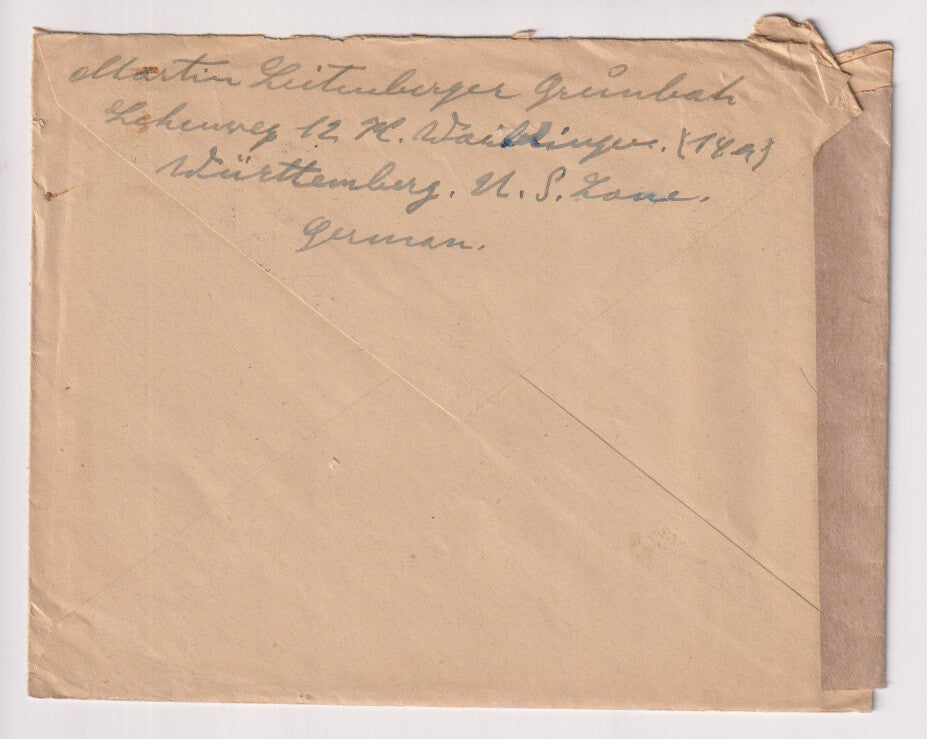 Martin Leitenberger Grŭnbach
Lohenweg 12 K. Waiblingen. (14a)
Württemberg. U. S. Zone.
German.